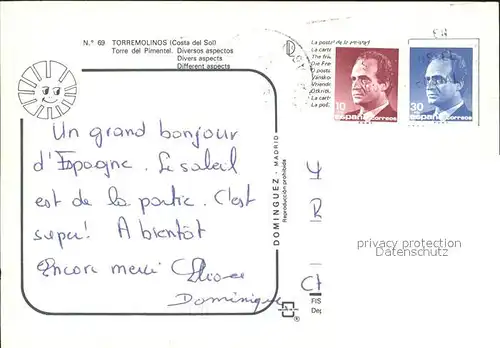 N.° 69 TORREMOLINOS (Costa del Sol)
Torre del Pimentel. Diversos aspectos
Divers aspects
Different aspects
La postal de la amistad
La carte
The frie
Die Fre
O posta
Vänsko
Vriendin
Otkritk
La carto
La poš
10
españa correos
30
españa correos
Un grand bonjour
d'Espagne. Le soleil
est de la partie. C'est
super! A bientôt
Encore merci
Dominique
DOMINGUEZ - MADRID
Reproducción prohibida
privacy protection
Datenschutz
FIS
De